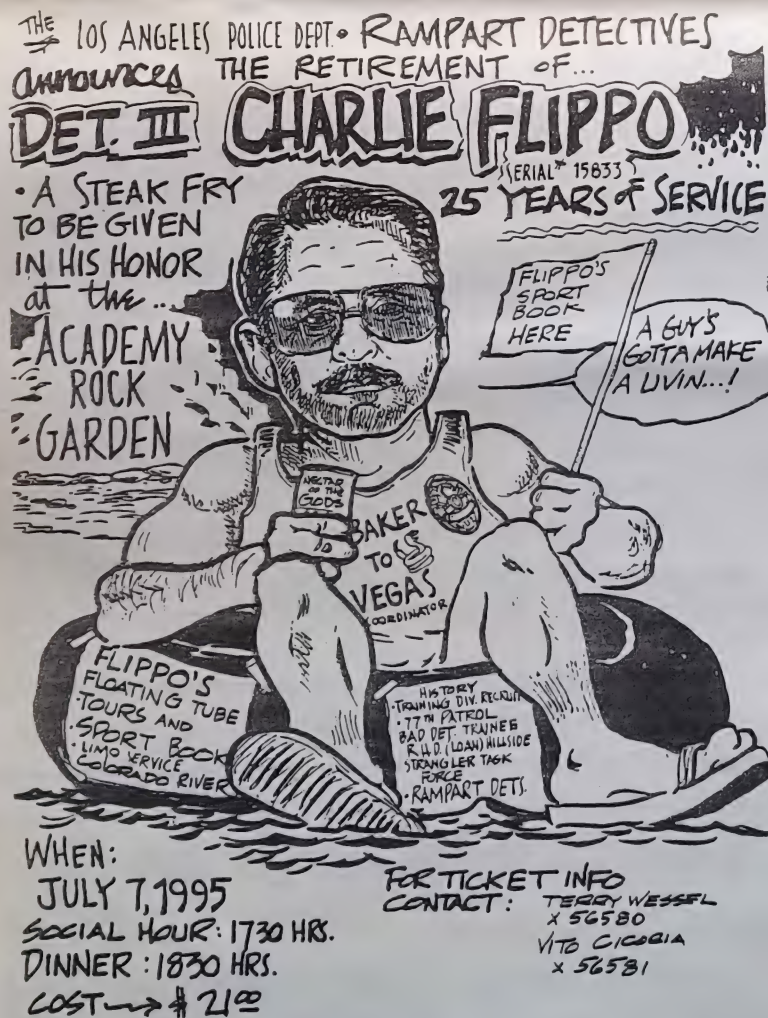 THE LOS ANGELES POLICE DEPT. • RAMPART DETECTIVES
announces THE RETIREMENT OF...
DET. III CHARLIE FLIPPO
SERIAL# 15833
25 YEARS of SERVICE
• A STEAK FRY
TO BE GIVEN
IN HIS HONOR
at the...
ACADEMY
ROCK
GARDEN
FLIPPO'S
SPORT
BOOK
HERE
A GUY'S
GOTTA MAKE
A LIVIN...!
NECTAR
OF THE
GODS
BAKER
TO
VEGAS
COORDINATOR
FLIPPO'S
FLOATING TUBE
TOURS AND
• SPORT BOOK
• LIMO SERVICE
COLORADO RIVER
HISTORY
• TRAINING DIV. RECRUIT
• 77TH PATROL
BAD DET. TRAINEE
R.H.D. (LOAN) HILLSIDE
STRANGLER TASK
FORCE
• RAMPART DETS.
WHEN:
JULY 7, 1995
SOCIAL HOUR: 1730 HRS.
DINNER: 1830 HRS.
COST → $ 21 00
FOR TICKET INFO
CONTACT: TERRY WESSEL
X 56580
VITO CICORIA
X 56581